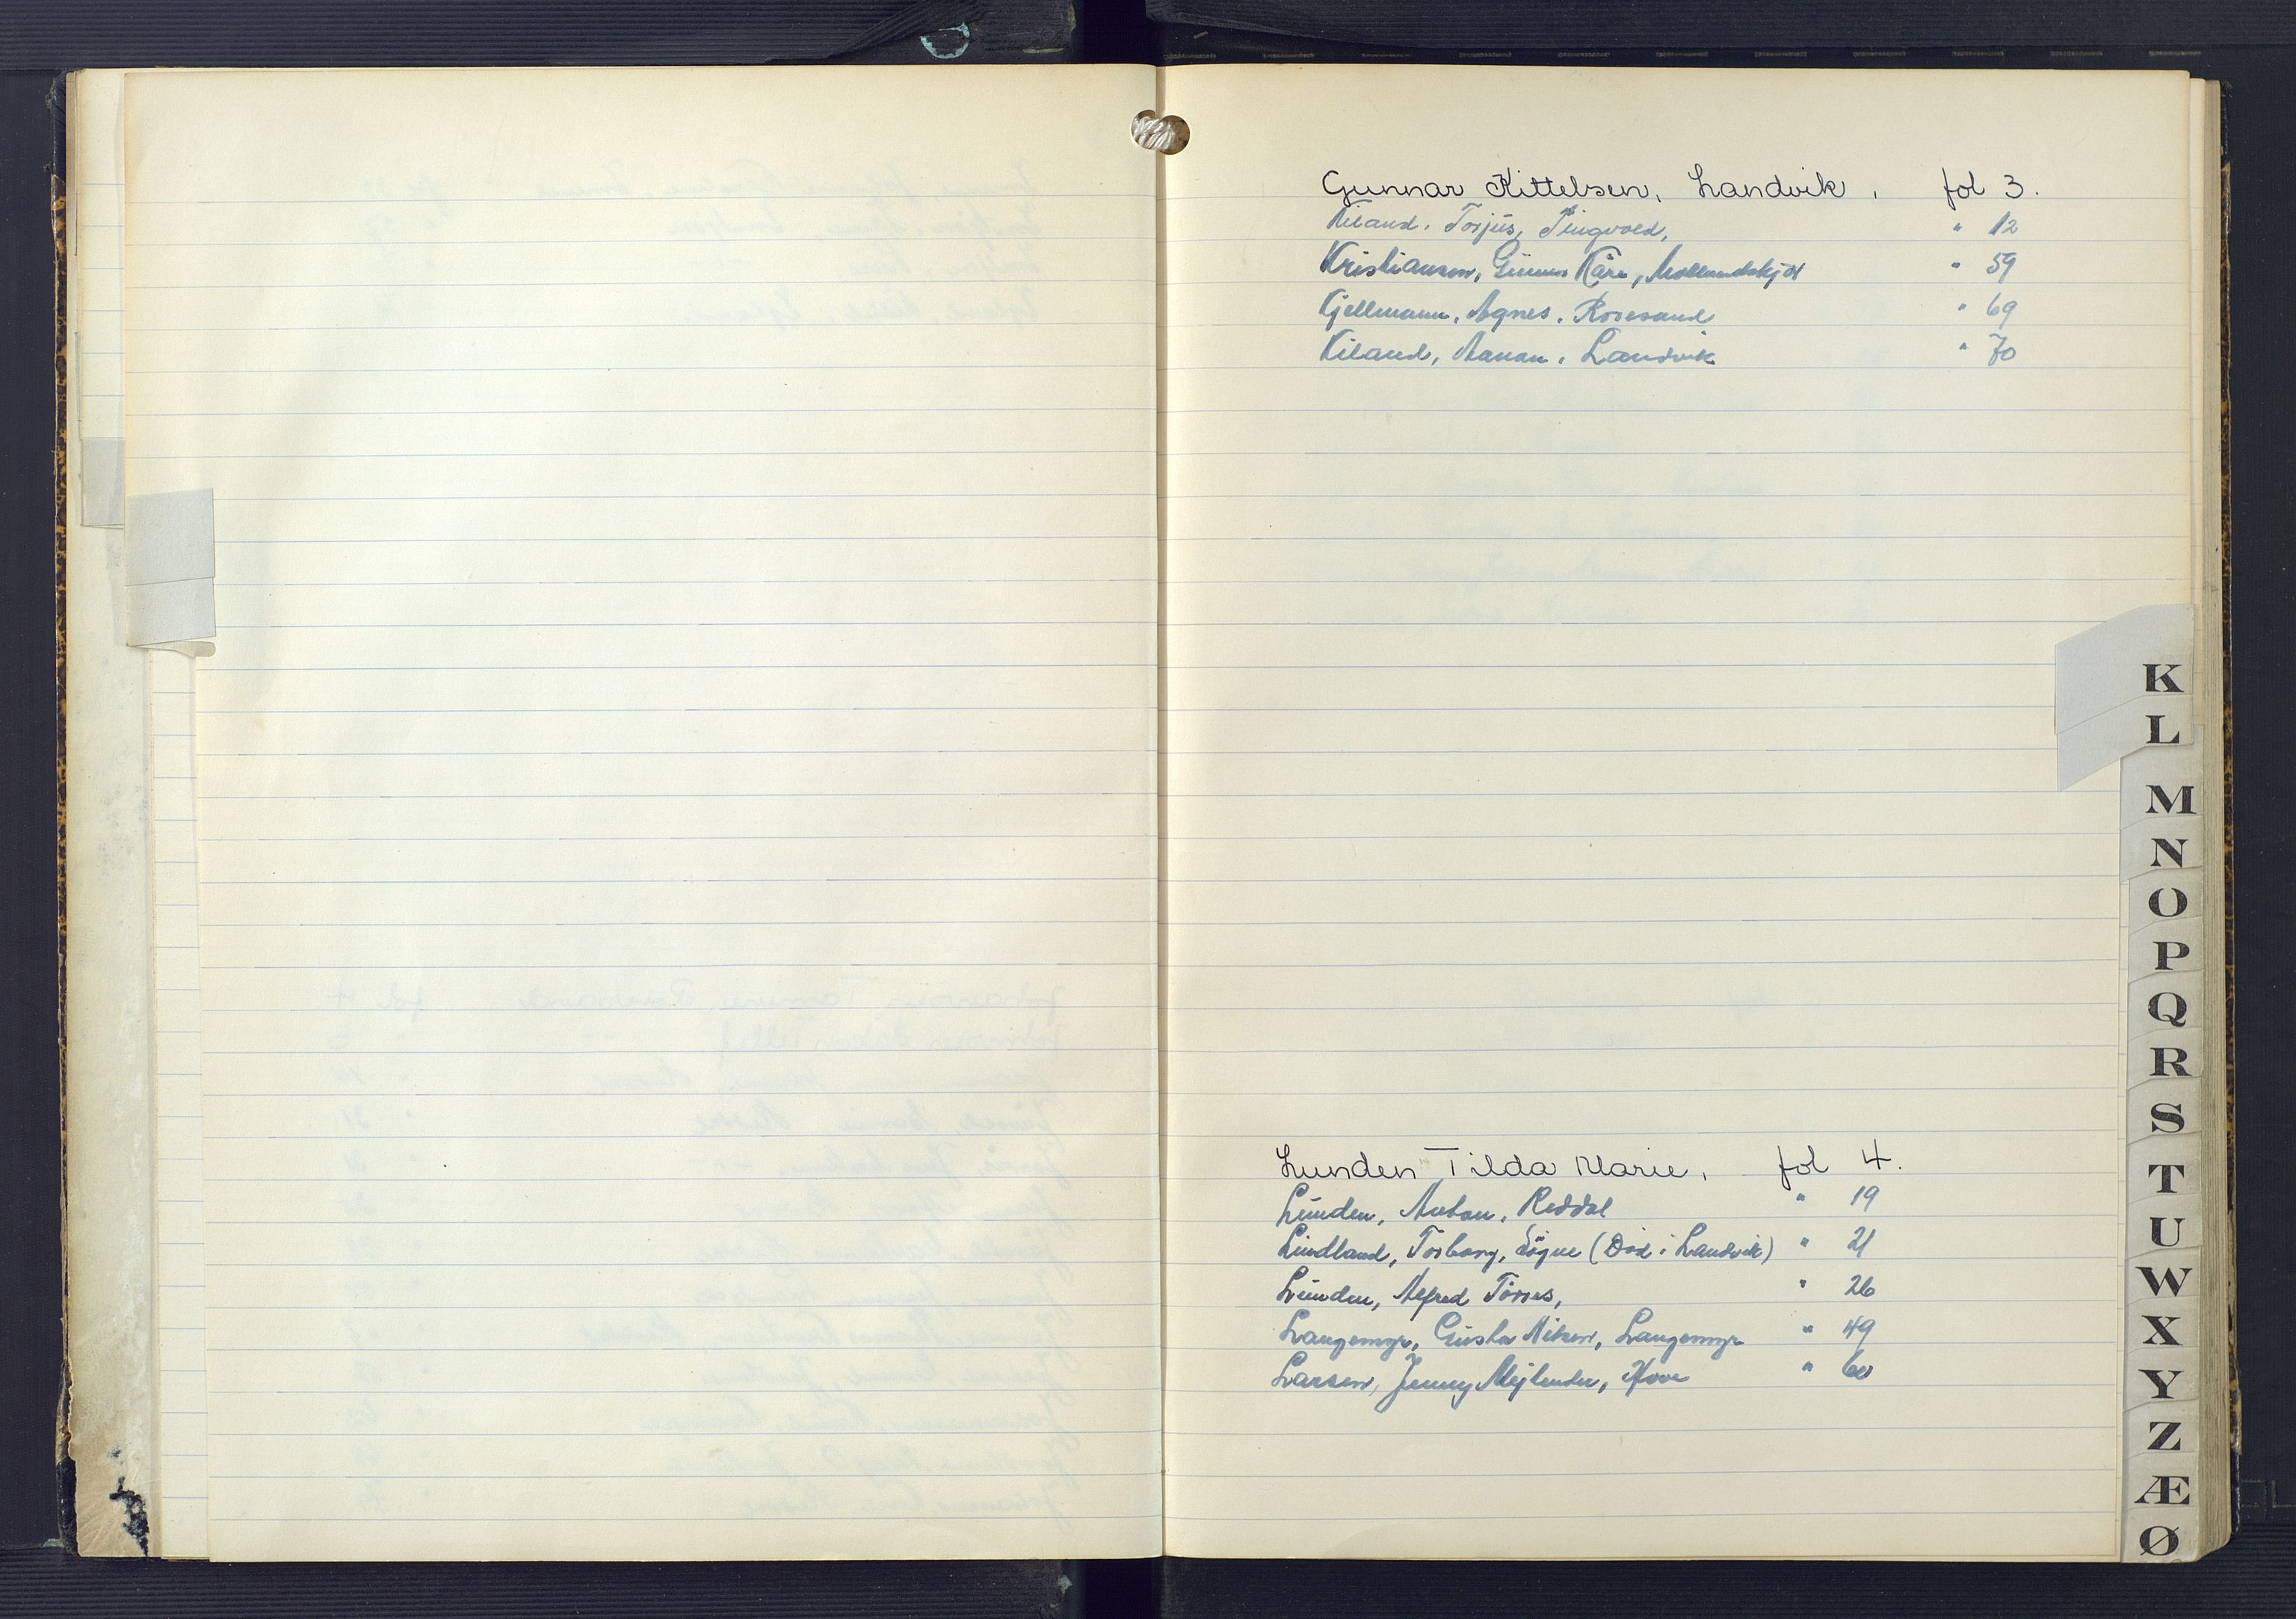 Gunnar Kittelsen, Landvik, fol 3.
Kiland, Torjus, Tingvold, " 12
Kristiansen, Gunnar Kåre, " 59
Kjellmann, Agnes, Rosesand " 69
Kiland, Aanan, Landvik " 70
K
L
M
N
O
P
Q
R
S
T
U
W
X
Y
Z
Æ
Ø
Lunden Tilda Marie, fol 4.
Lunden, Anton, Reddal " 19
Lindland, Torborg, Søgne (Død i Landvik) " 21
Lunden, Alfred Tørres, " 26
Langemyr, Langemyr " 49
Larsen, Jenny Mejlender, Hove " 60